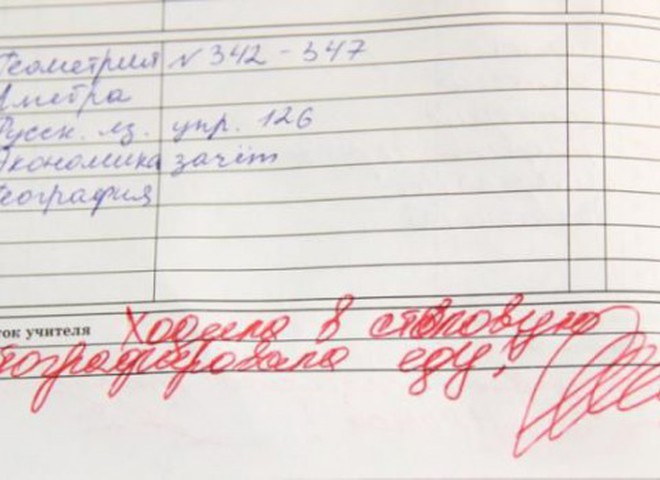 Геометрия № 342 - 347
Алгебра
Русск. яз. упр. 126
Экономика зачёт
География
ток учителя Ходила в столовую
тографировала еду!